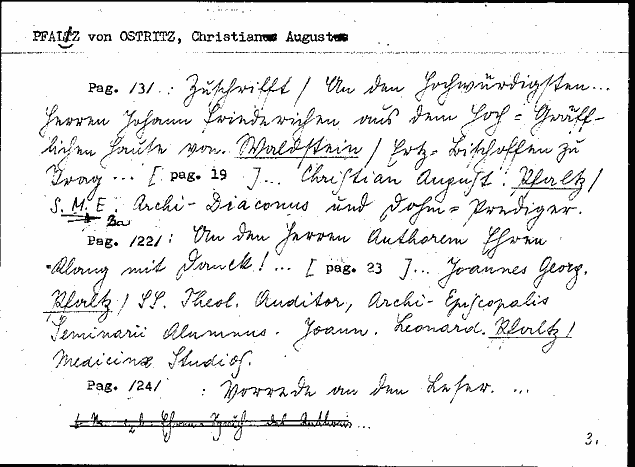 PFALTZ von OSTRITZ, Christian August
Pag. /3/ : Zuschrifft / An den Hochwürdigsten...
Herren Johann Friederichen aus dem Hoch = Gräff-
lichen Hause von Waldstein / Ertz = Bischoffen zu
Prag ... [ pag. 19 ] ... Christian August Pfaltz /
S. M. E. Archi- Diaconus und Dohm = Prediger.
Pag. /22/ : An den Herren Authorem Ehren
Klang mit Danck! ... [ pag. 23 ] ... Joannes Georg.
Pfaltz / SS. Theol. Auditor, Archi- Episcopalis
Seminarii Alumnus. Joann. Leonard. Pfaltz /
Medicinæ Studios.
Pag. /24/ : Vorrede an den Leser. ...
3.